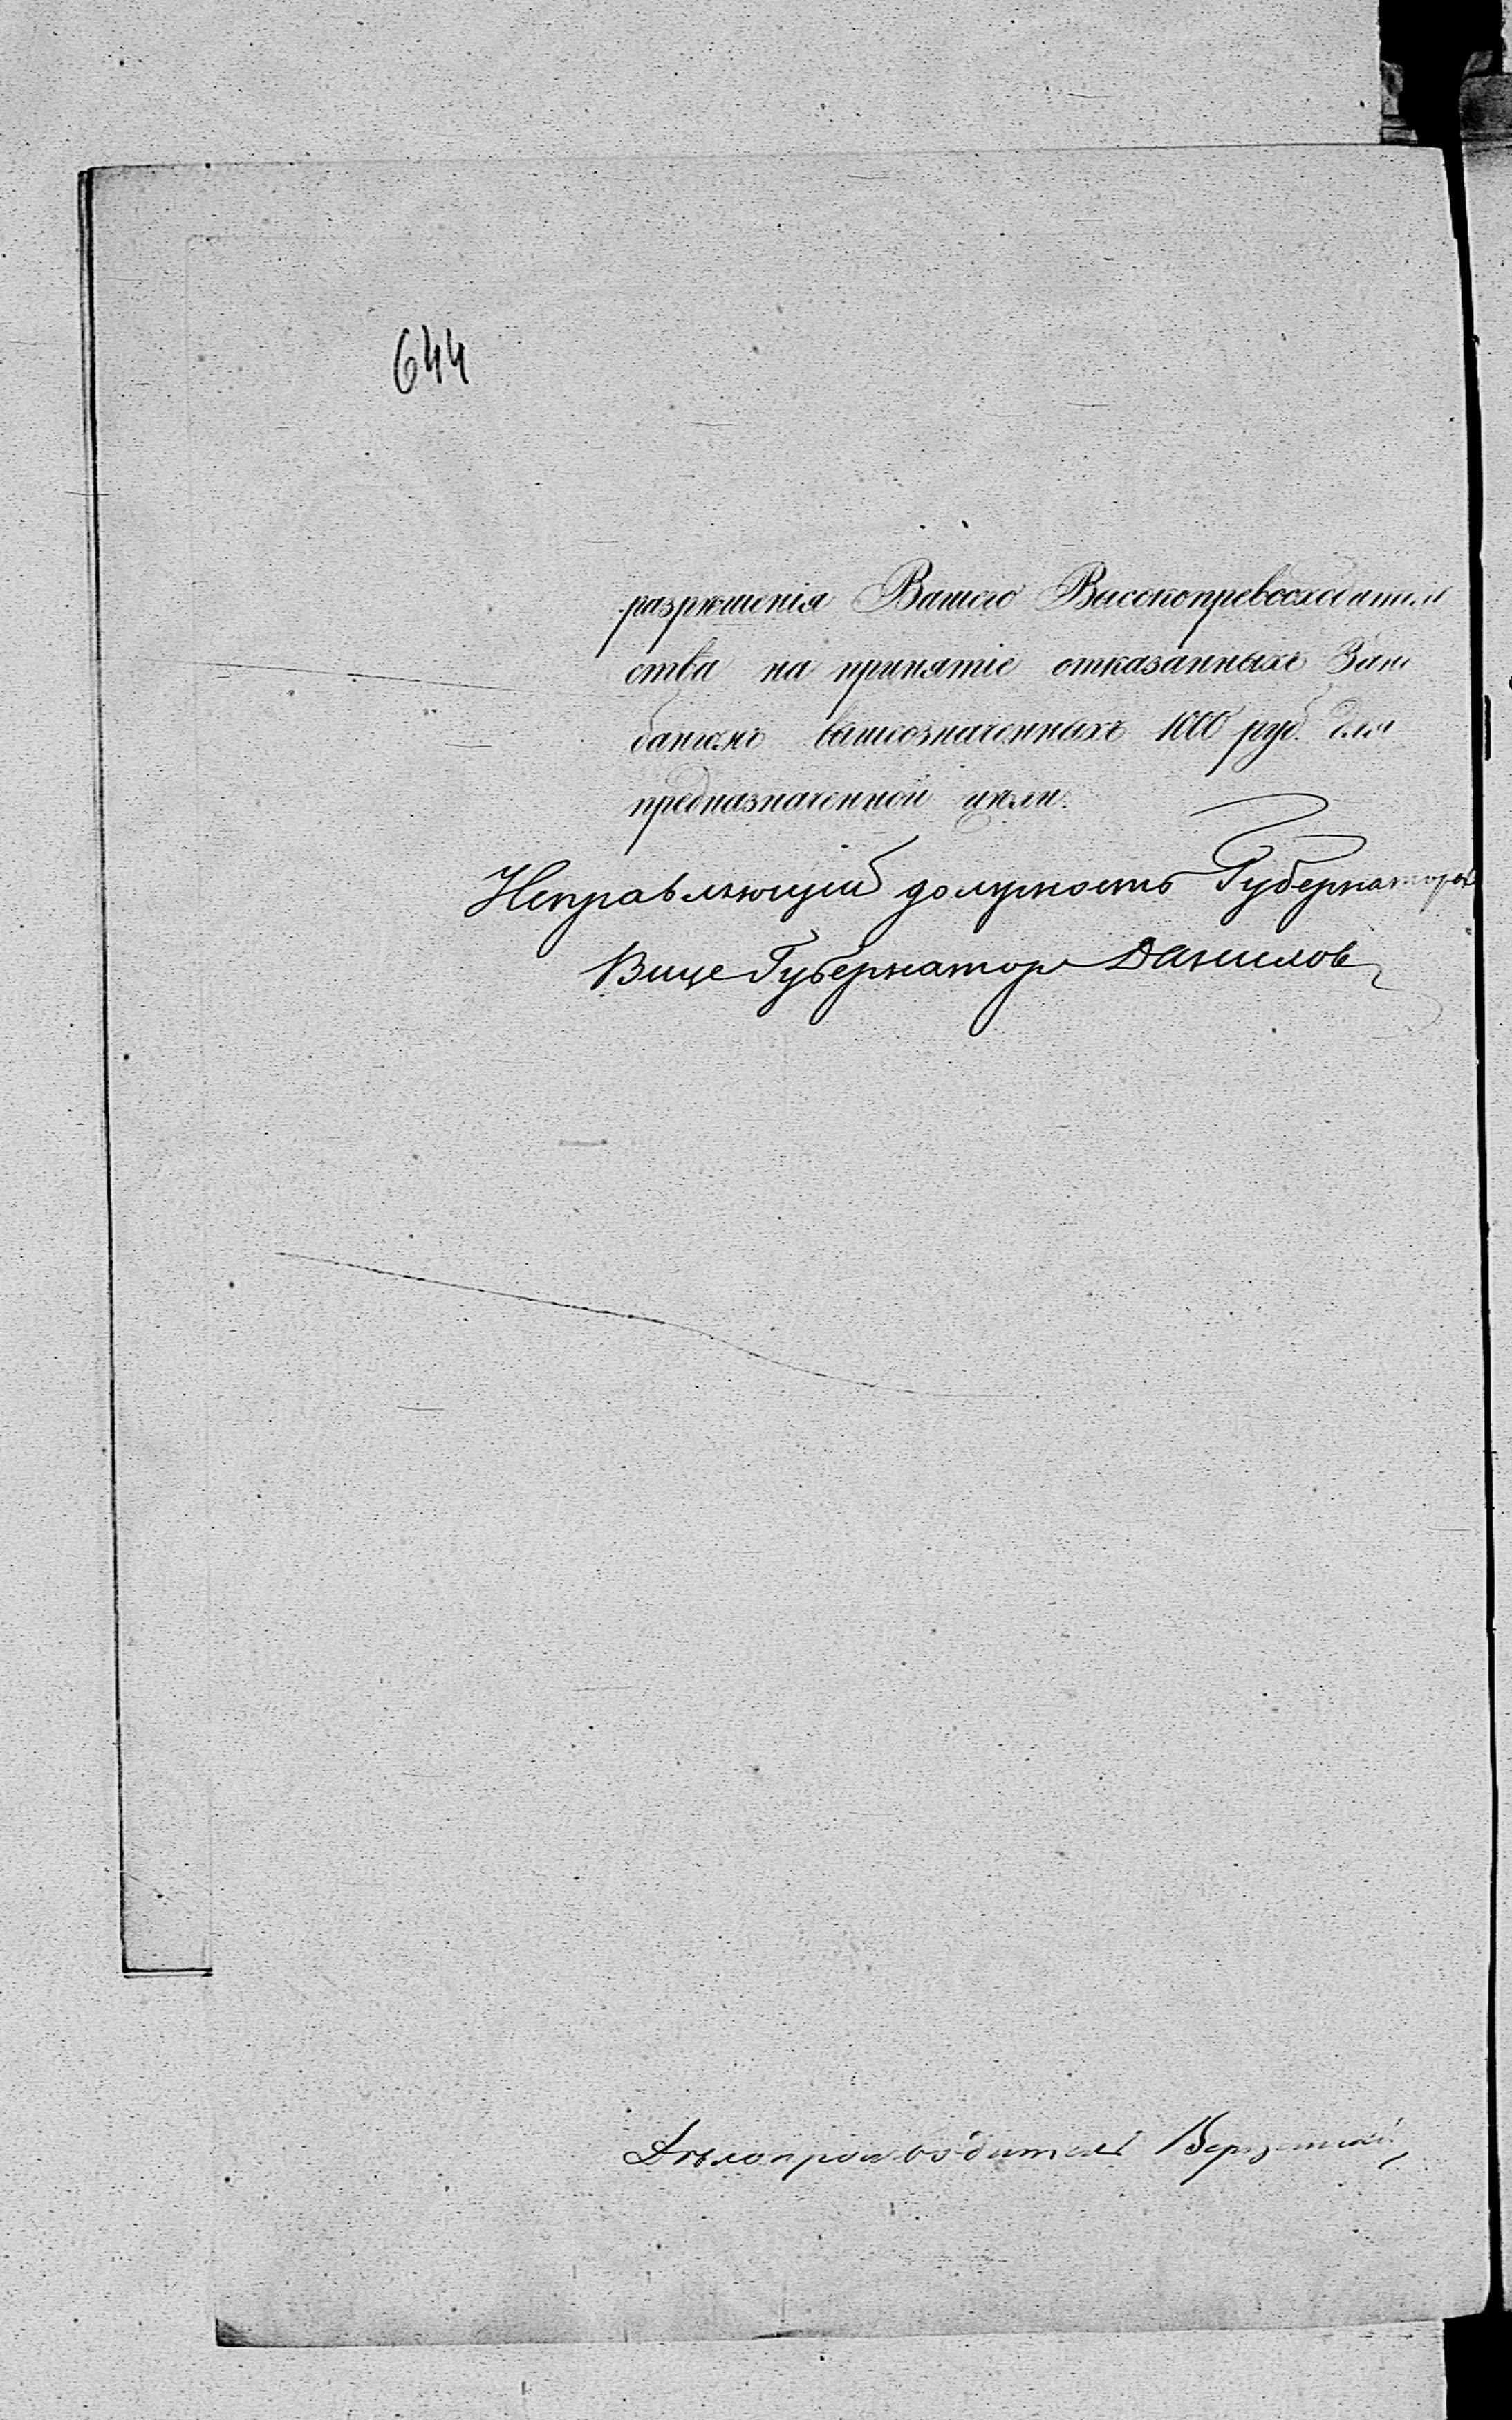 644
разрѣшенія Вашего Высокопревосходитель
ства на принятіе отказанныхъ
вышеозначенныхъ 1000 руб. для
предназначенной цѣли.
Исправляющій должность Губернатора
Вице Губернаторъ Данилов
Дѣлопроизводитель